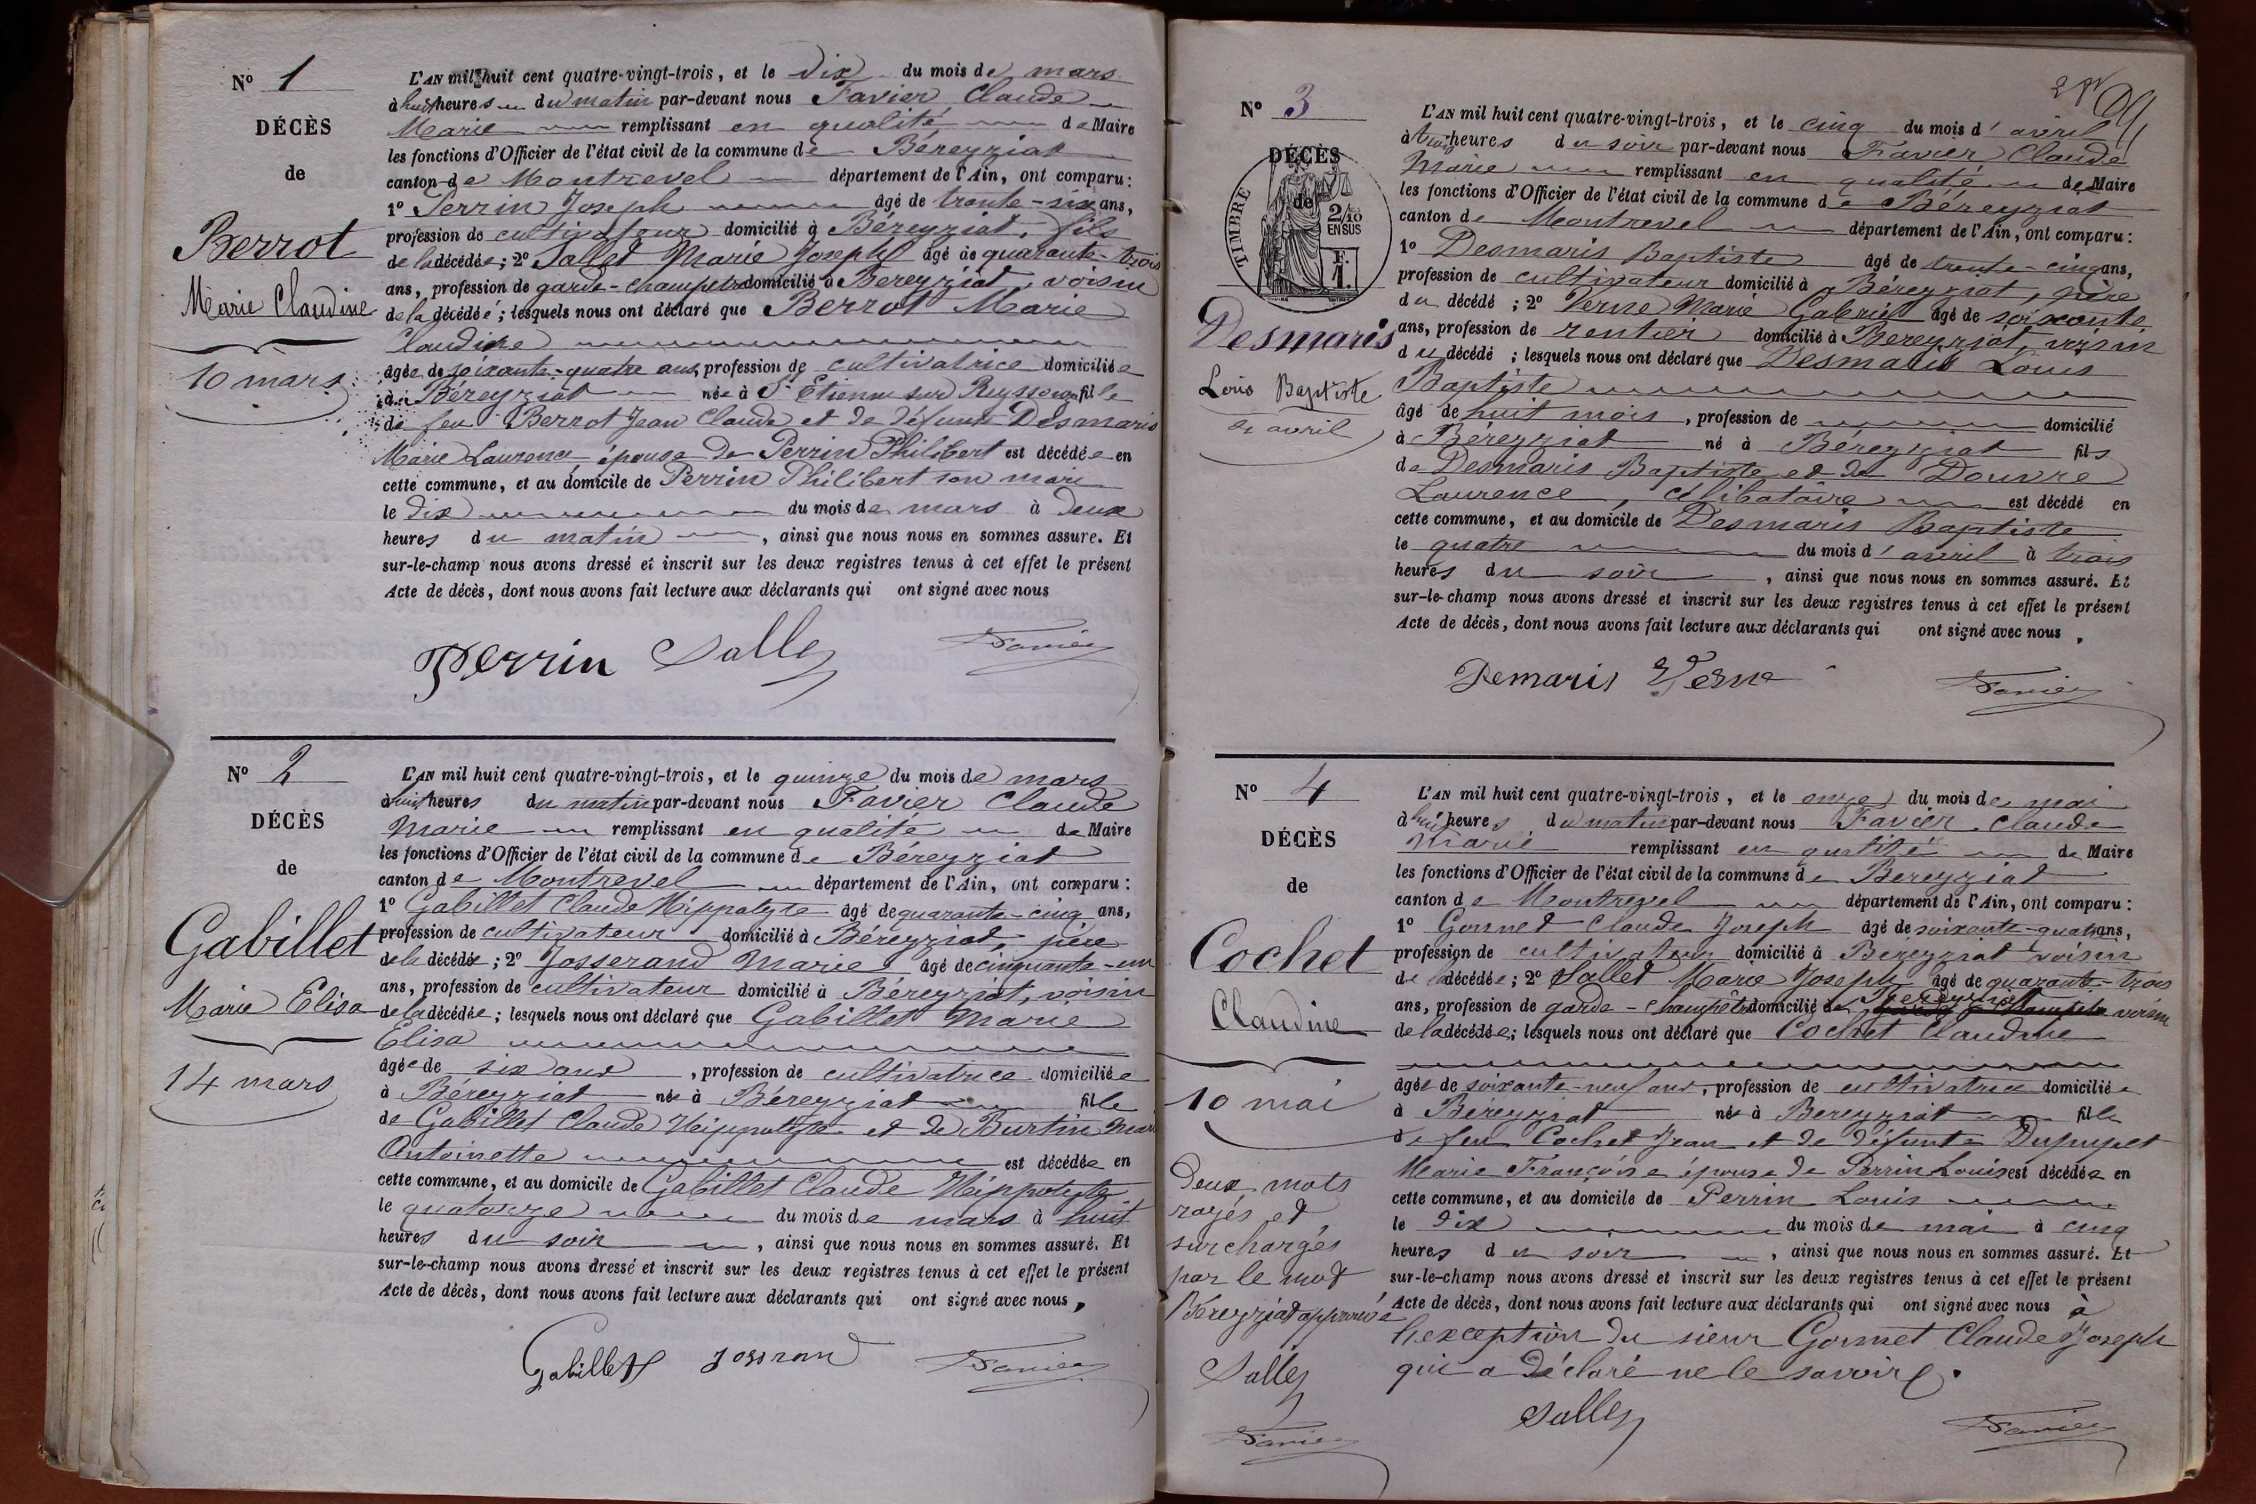 N° 1
DÉCÈS
de
Berrot
Marie Claudine
10 mars
L'AN mil huit cent quatre-vingt-trois, et le dix du mois de mars
à huit heures du matin par-devant nous Favier Claude
Marie remplissant en qualité de Maire
les fonctions d'Officier de l'état civil de la commune de Béreyziat
canton de Montrevel département de l'Ain, ont comparu:
1° Perrin Joseph âgé de trente-six ans,
profession de cultivateur domicilié à Béreyziat, fils
de la décédée; 2° Sallet Marie Joseph âgé de quarante-trois
ans, profession de garde-champêtre domicilié à Béreyziat, voisin
de la décédée; lesquels nous ont déclaré que Berrot Marie
Claudine
âgée de soixante-quatre ans, profession de cultivatrice domiciliée
à Béreyziat née à St Etienne sur Reyssouze fille
de feu Berrot Jean Claude et de défunte Desmaris
Marie Laurence épouse de Perrin Philibert est décédée en
cette commune, et au domicile de Perrin Philibert son mari
le dix du mois de mars à deux
heures du matin, ainsi que nous nous en sommes assuré. Et
sur-le-champ nous avons dressé et inscrit sur les deux registres tenus à cet effet le présent
Acte de décès, dont nous avons fait lecture aux déclarants qui ont signé avec nous
Perrin Sallet Favier
N° 2
DÉCÈS
de
Gabillet
Marie Elisa
14 mars
L'AN mil huit cent quatre-vingt-trois, et le quinze du mois de mars
à huit heures du matin par-devant nous Favier Claude
Marie remplissant en qualité de Maire
les fonctions d'Officier de l'état civil de la commune de Béreyziat
canton de Montrevel département de l'Ain, ont comparu:
1° Gabillet Claude Hippolyte âgé de quarante-cinq ans,
profession de cultivateur domicilié à Béreyziat, père
de la décédée; 2° Josserand Marie âgé de cinquante-un
ans, profession de cultivateur domicilié à Béreyziat, voisin
de la décédée; lesquels nous ont déclaré que Gabillet Marie
Elisa
âgée de six ans, profession de cultivatrice domiciliée
à Béreyziat née à Béreyziat fille
de Gabillet Claude Hippolyte et de Burtin Marie
Antoinette est décédée en
cette commune, et au domicile de Gabillet Claude Hippolyte
le quatorze du mois de mars à huit
heures du soir, ainsi que nous nous en sommes assuré. Et
sur-le-champ nous avons dressé et inscrit sur les deux registres tenus à cet effet le présent
Acte de décès, dont nous avons fait lecture aux déclarants qui ont signé avec nous,
Gabillet Josserand Favier
N° 3
DÉCÈS
de
TIMBRE
2/10
EN SUS
F.
1.
Desmaris
Louis Baptiste
4 avril
L'AN mil huit cent quatre-vingt-trois, et le cinq du mois d'avril
à trois heures du soir par-devant nous Favier Claude
Marie remplissant en qualité de Maire
les fonctions d'Officier de l'état civil de la commune de Béreyziat
canton de Montrevel département de l'Ain, ont comparu:
1° Desmaris Baptiste âgé de trente-cinq ans,
profession de cultivateur domicilié à Béreyziat, père
du décédé; 2° Verne Marie Gabriel âgé de soixante
ans, profession de rentier domicilié à Béreyziat, voisin
du décédé; lesquels nous ont déclaré que Desmaris Louis
Baptiste
âgé de huit mois, profession de domicilié
à Béreyziat né à Béreyziat fils
de Desmaris Baptiste et de Douvre
Laurence, célibataire est décédé en
cette commune, et au domicile de Desmaris Baptiste
le quatre du mois d'avril à trois
heures du soir, ainsi que nous nous en sommes assuré. Et
sur-le-champ nous avons dressé et inscrit sur les deux registres tenus à cet effet le présent
Acte de décès, dont nous avons fait lecture aux déclarants qui ont signé avec nous,
Demaris Verne Favier
N° 4
DÉCÈS
de
Cochet
Claudine
10 mai
Deux mots
rayés et
surchargés
par le mot
Béreyziat approuvé
Sallet
Favier
L'AN mil huit cent quatre-vingt-trois, et le onze du mois de mai
à huit heures du matin par-devant nous Favier Claude
Marie remplissant en qualité de Maire
les fonctions d'Officier de l'état civil de la commune de Béreyziat
canton de Montrevel département de l'Ain, ont comparu:
1° Gonnet Claude Joseph âgé de soixante-quatre ans,
profession de cultivateur domicilié à Béreyziat voisin
de la décédée; 2° Sallet Marie Joseph âgé de quarante-trois
ans, profession de garde-champêtre domicilié à Béreyziat voisin
de la décédée; lesquels nous ont déclaré que Cochet Claudine
âgée de soixante-neuf ans, profession de cultivatrice domiciliée
à Béreyziat née à Béreyziat fille
de feu Cochet Jean et de défunte Dupupet
Marie Françoise épouse de Perrin Louis est décédée en
cette commune, et au domicile de Perrin Louis
le dix du mois de mai à cinq
heures du soir, ainsi que nous nous en sommes assuré. Et
sur-le-champ nous avons dressé et inscrit sur les deux registres tenus à cet effet le présent
Acte de décès, dont nous avons fait lecture aux déclarants qui ont signé avec nous à
l'exception du sieur Gonnet Claude Joseph
qui a déclaré ne le savoir.
Sallet Favier